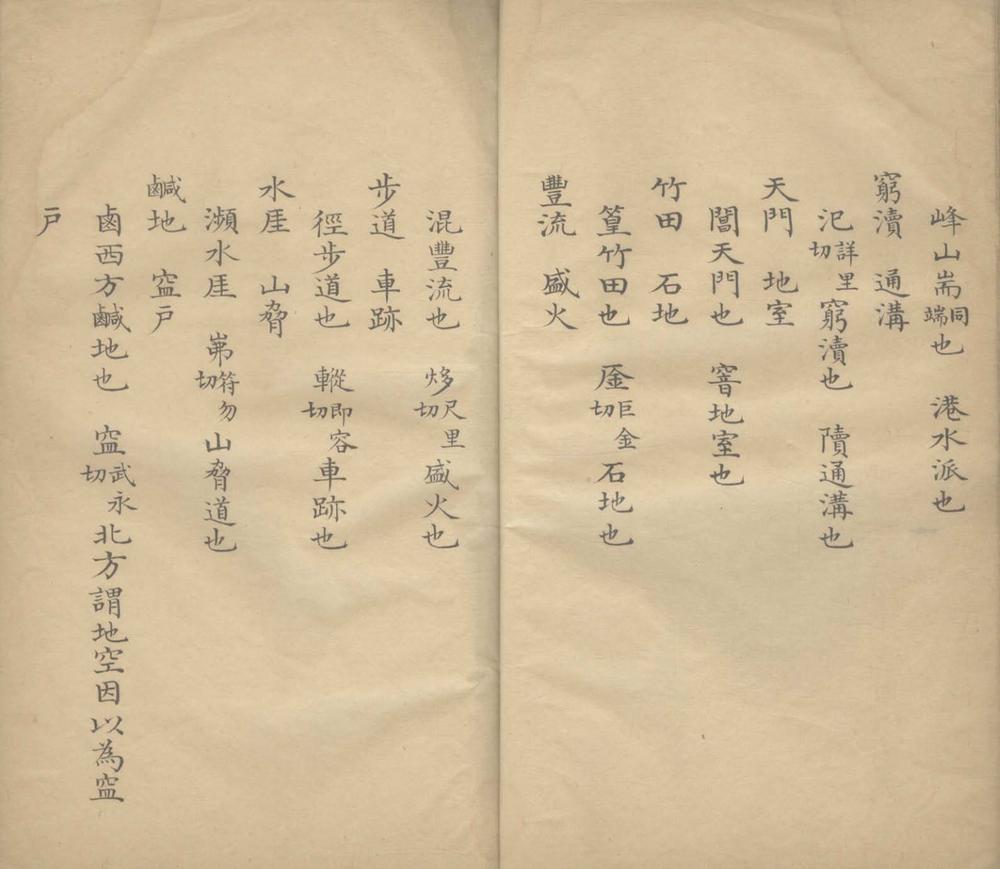 峰山耑同端也　港水派也
窮瀆　通溝
汜詳里切窮瀆也　隫通溝也
天門　地室
閶天門也　窨地室也
竹田　石地
篁竹田也　𠪚巨金切石地也
豐流　盛火
混豐流也　㶴尺里切盛火也
步道　車跡
徑步道也　轍即容切車跡也
水厓　山脅
瀕水厓　岪符勿切山脅道也
鹹地　窋戶
鹵西方鹹地也　窋武永切北方謂地空因以為窋
戶